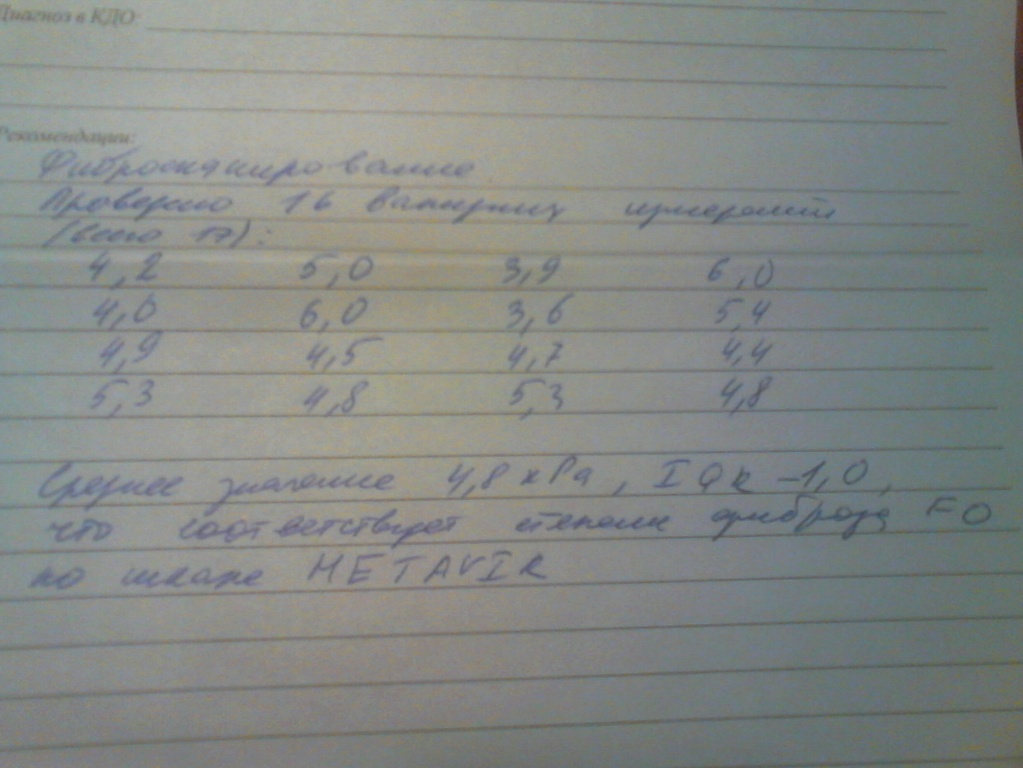 Диагноз в КДО:
Рекомендации:
Фибросканирование
Проверено 16 валидных измерений
(всего 17):
4,2 5,0 3,9 6,0
4,0 6,0 3,6 5,4
4,9 4,5 4,7 4,4
5,3 4,8 5,3 4,8
Среднее значение 4,8 кPa, IQR -1,0,
что соответствует степени фиброза F0
по шкале METAVIR